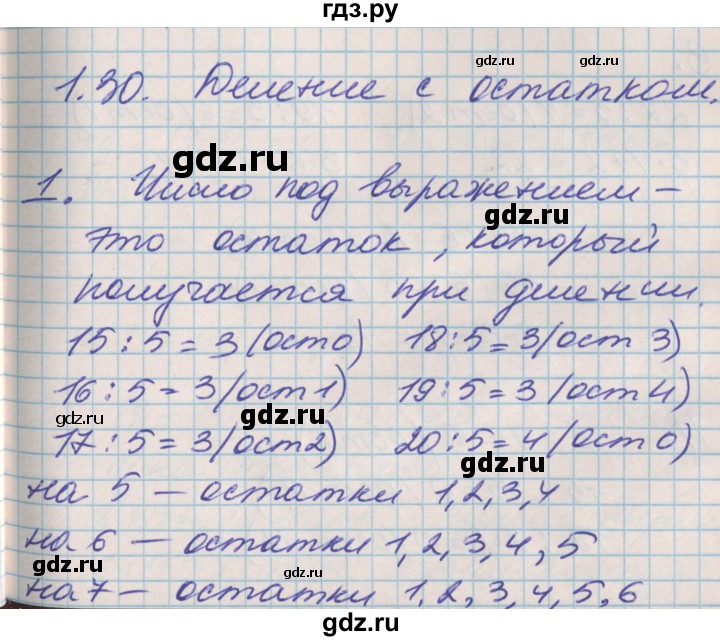 гдз.ру
1.30. Деление с остатком.
1. Число под выражением –
это остаток, который
получается при делении.
15 : 5 = 3 (ост 0) 18 : 5 = 3 (ост 3)
16 : 5 = 3 (ост 1) 19 : 5 = 3 (ост 4)
17 : 5 = 3 (ост 2) 20 : 5 = 4 (ост 0)
на 5 – остатки 1, 2, 3, 4
на 6 – остатки 1, 2, 3, 4, 5
на 7 – остатки 1, 2, 3, 4, 5, 6
gdz.ru
gdz.ru
gdz.ru
gdz.ru
gdz.ru
gdz.ru
gdz.ru
gdz.ru
gdz.ru
gdz.ru
gdz.ru
gdz.ru